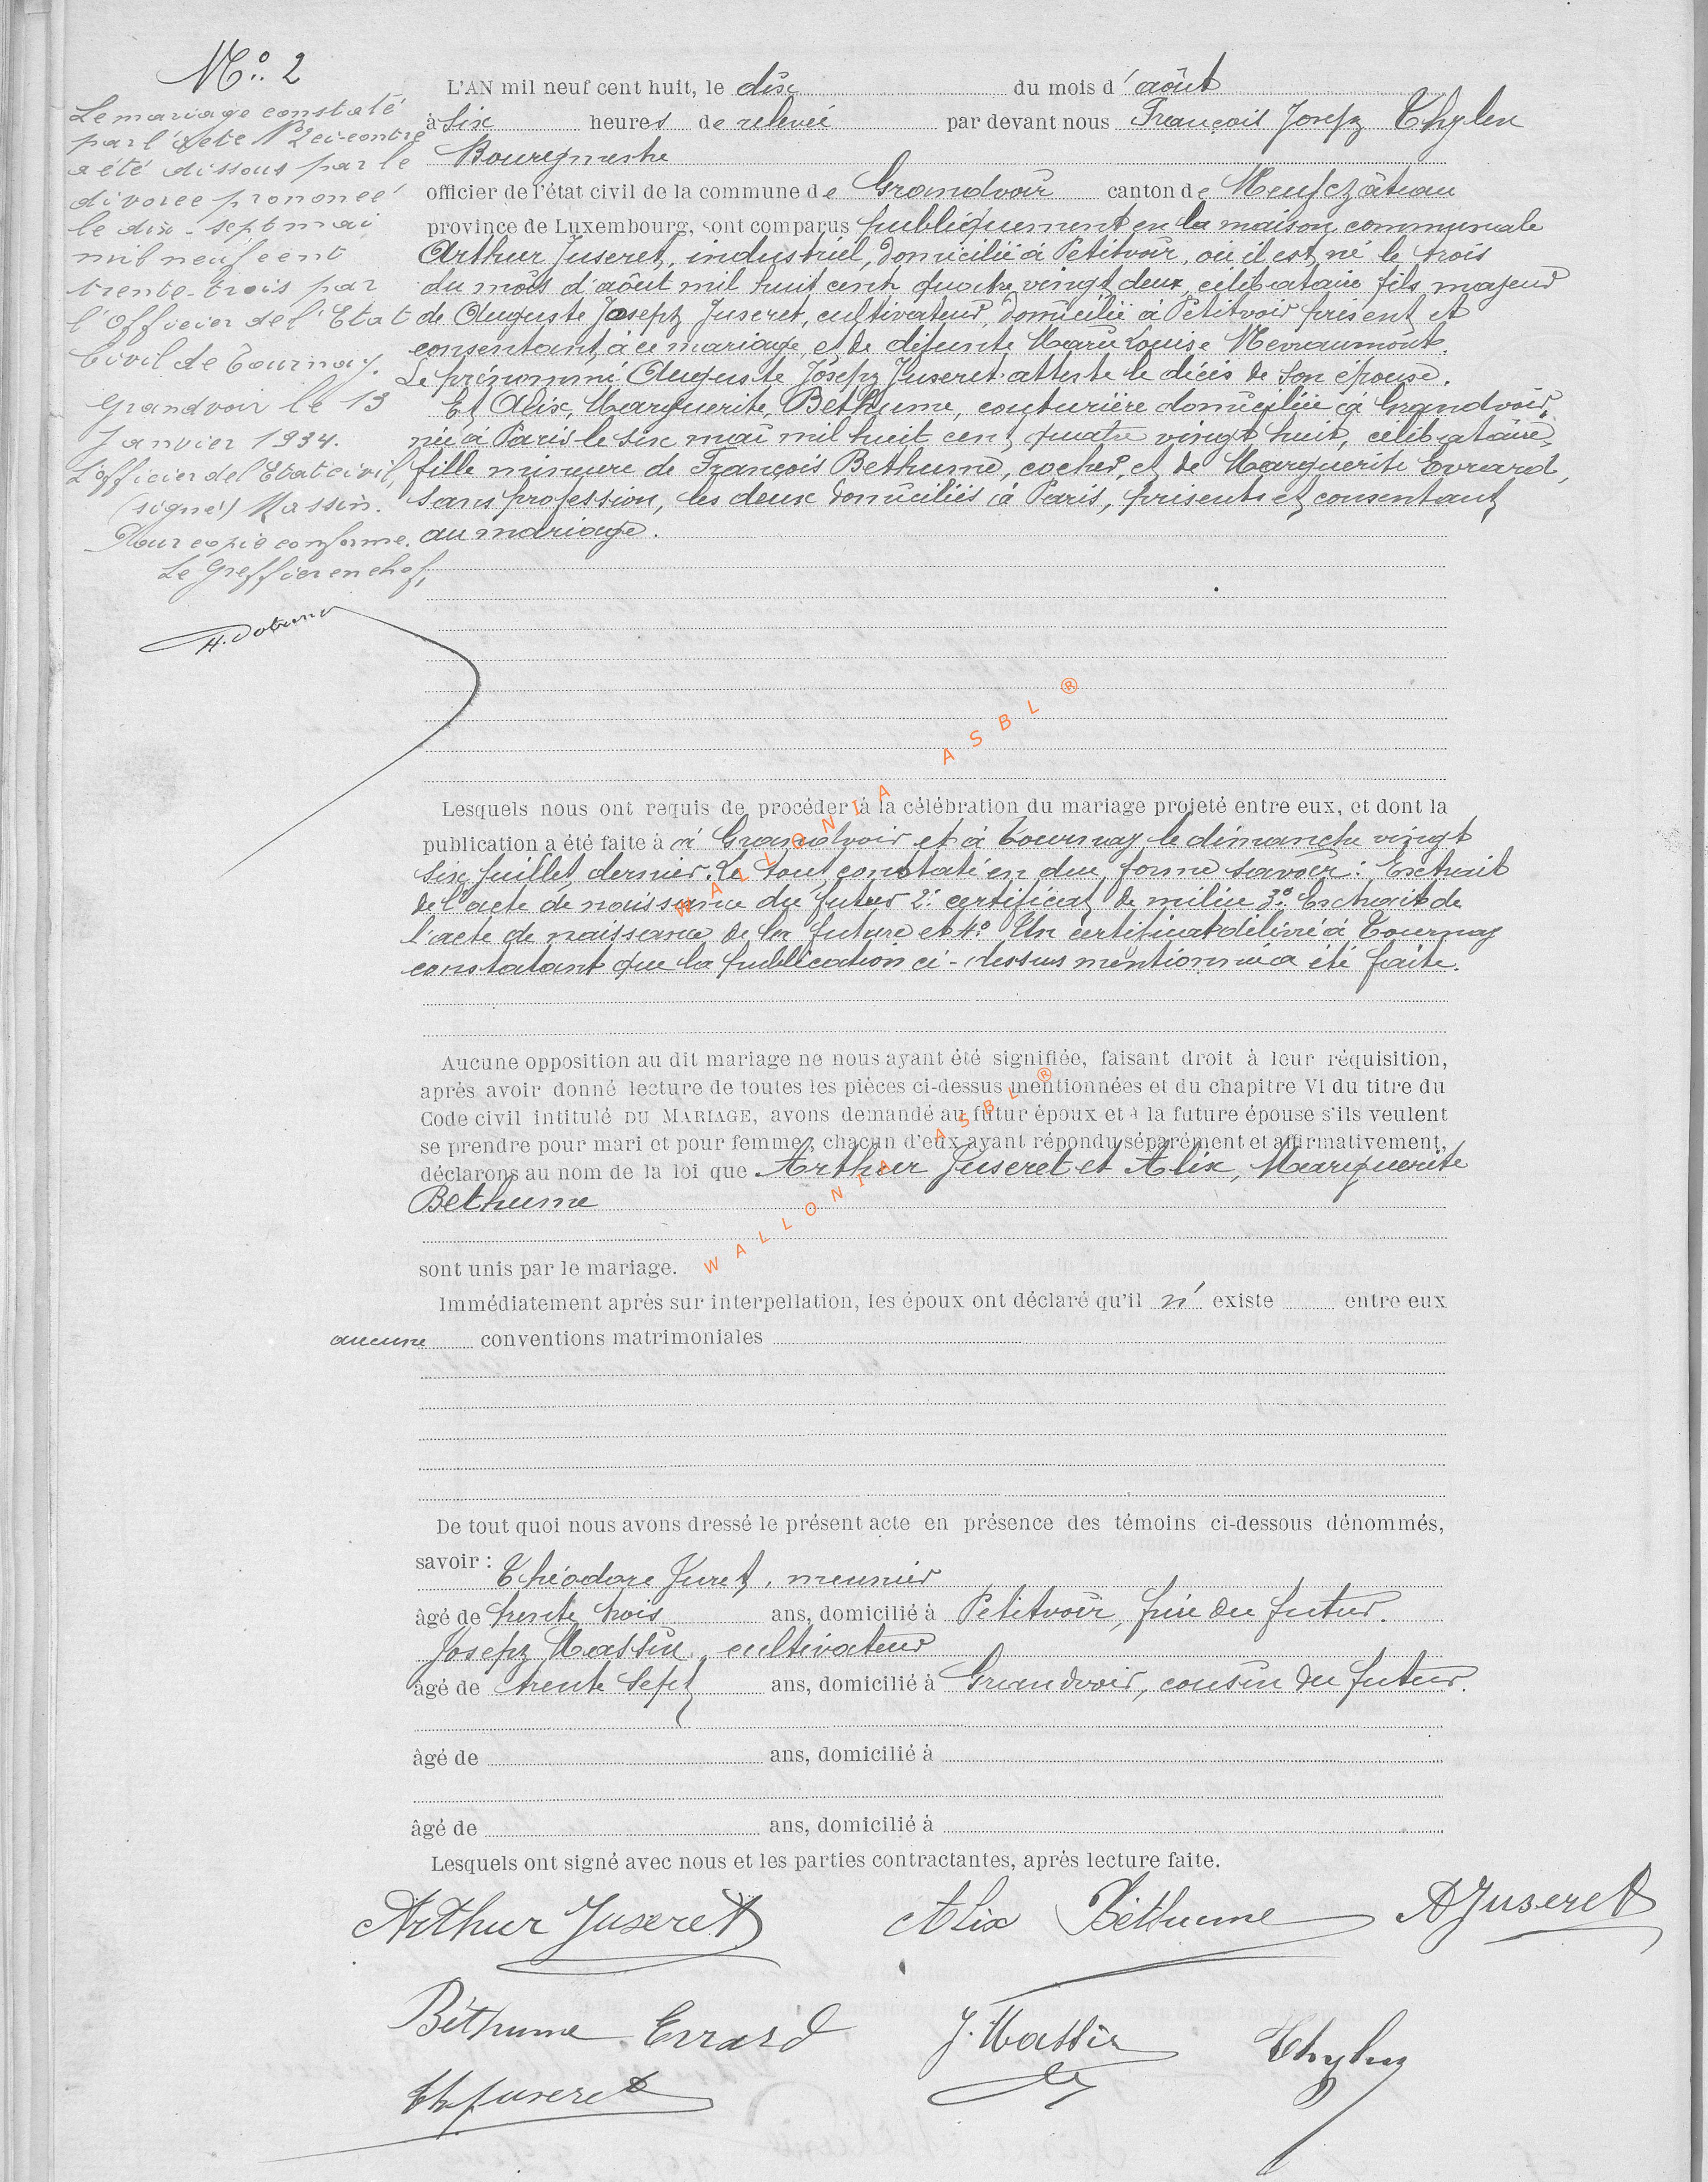 N°. 2
Le mariage constaté
par l'acte N° 2 ci-contre
a été dissous par le
divorce prononcé
le dix-sept mai
mil neuf cent
trente-trois par
l'Officier de l'Etat
Civil de Tournay.
Grandvoir le 13
Janvier 1934.
L'officier de l'Etat civil,
(signé) Massin.
Pour copie conforme.
Le Greffier en chef,
L'AN mil neuf cent huit, le dix du mois d'août
à six heures de relevée par devant nous François Joseph Thylen
Bourgmestre
officier de l'état civil de la commune de Grandvoir canton de Neufchâteau
province de Luxembourg, sont comparus publiquement en la maison communale
Arthur Juseret, industriel, domicilié à Petitvoir, où il est né le trois
du mois d'août mil huit cent quatre vingt deux, célibataire fils majeur
de Auguste Joseph Juseret, cultivateur, domicilié à Petitvoir présent et
consentant à ce mariage, et de défunte Marie Louise Nevraumont.
Le prénommé Auguste Joseph Juseret atteste le décès de son épouse.
Et Alix, Marguerite, Bethume, couturière domiciliée à Grandvoir,
née à Paris le six mai mil huit cent quatre vingt huit, célibataire,
fille mineure de François Bethume, cocher, et de Marguerite Evrard,
sans profession, les deux domiciliés à Paris, présents et consentant
au mariage.
Lesquels nous ont requis de procéder à la célébration du mariage projeté entre eux, et dont la
publication a été faite à à Grandvoir et à Tournay le dimanche vingt
six juillet dernier. Le tout constaté en due forme savoir : Extrait
de l'acte de naissance du futur 2° certificat de milice 3° Extrait de
l'acte de naissance de la future et 4° Un certificat délivré à Tournay
constatant que la publication ci-dessus mentionnée a été faite.
Aucune opposition au dit mariage ne nous ayant été signifiée, faisant droit à leur réquisition,
après avoir donné lecture de toutes les pièces ci-dessus mentionnées et du chapitre VI du titre du
Code civil intitulé DU MARIAGE, avons demandé au futur époux et à la future épouse s'ils veulent
se prendre pour mari et pour femme ; chacun d'eux ayant répondu séparément et affirmativement,
déclarons au nom de la loi que Arthur Juseret et Alix, Marguerite
Bethume
sont unis par le mariage.
Immédiatement après sur interpellation, les époux ont déclaré qu'il n' existe entre eux
aucune conventions matrimoniales
De tout quoi nous avons dressé le présent acte en présence des témoins ci-dessous dénommés,
savoir : Théodore Juret, meunier
âgé de trente trois ans, domicilié à Petitvoir, frère du futur.
Joseph Massin, cultivateur
âgé de trente sept ans, domicilié à Grandvoir, cousin du futur.
âgé de ans, domicilié à
âgé de ans, domicilié à
Lesquels ont signé avec nous et les parties contractantes, après lecture faite.
Arthur Juseret Alix Béthume A Juseret
Béthume Evrard J. Massin Thylen
Th Juseret
WALLONIA ASBL ®
WALLONIA ASBL ®